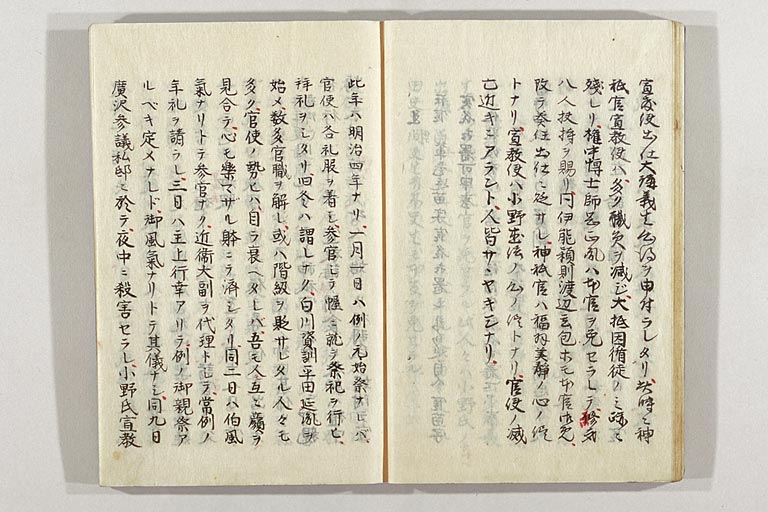 宣教使出仕大講義生等ヲ申付ラレタリ此時ニ神
祇官宣教使ハ多ク職員ヲ減ジ大抵因循徒ノミ踈ニ
残レリ権中博士師岡正胤ハ本官ヲ免セラレテ終身
八人扶持ヲ賜リ伊能穎則渡辺玄包ホ元本官御免
改テ奏任出仕ニ定サレ神祇官ハ福羽美静ノ心ノ侭
トナリ宣教使ハ小野ノ心ノ侭トナリ官使ノ滅
亡近キニアラント人皆サヽヤキ合ナリ
此年ハ明治四年ナリ一月一日ハ例ノ元始祭ナレバ
官使ハ各礼服ヲ着シ参官シテ幄舎ニ就テ祭祀ヲ行ヒ
拝礼ヲシタリ旧冬ハ謂レナク白川資訓平田延胤ヲ
始メ数多官職ヲ解シ或ハ階級ヲ貶サレタル人々モ
多ク官使ノ勢ヒハ自ラ衰ヘタレバ吾モ人互ニ顔ヲ
見合テ心モ樂マサル躰ニテ済シタリ同二日ハ伯風
氣ナリトテ参官ナク近衛大副ヲ代理トシテ常例ノ
年礼ヲ請ラレ三日ハ主上行幸アリテ例ノ御親祭ア
ルベキ定メナレド御風氣ナリトテ其儀ナシ同九日
廣沢参議私邸ニ於テ夜中ニ殺害セラレ小野氏宣教